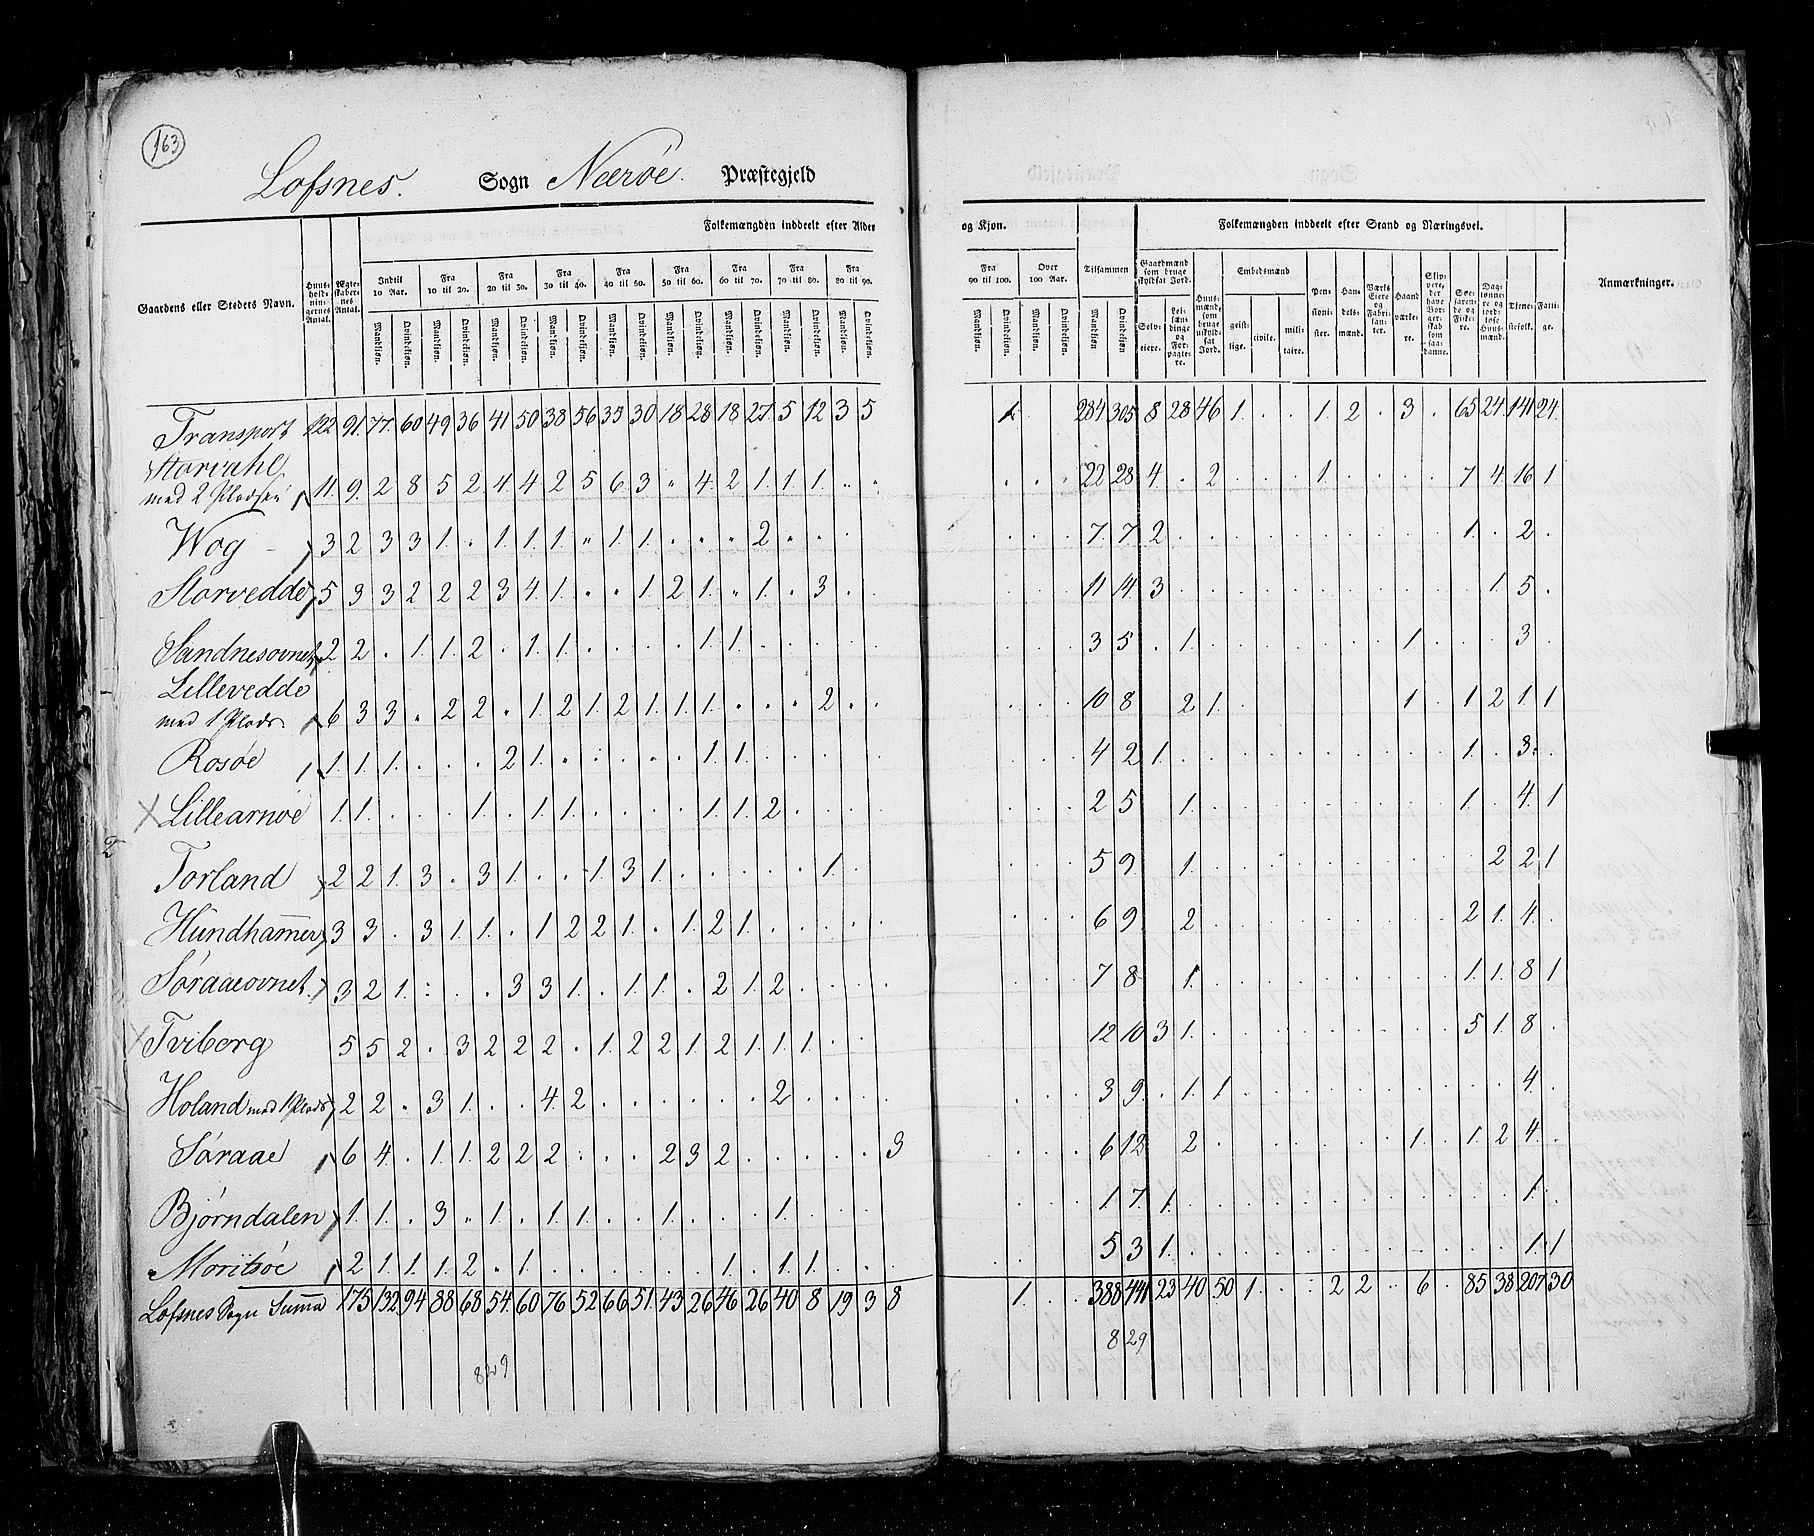 163
Lofsnes. Sogn Nærøe. Præstegjeld
Gaardens eller Stedets Navn. Huusholdningernes Antal. Ægteskabernes Antal. Folkemængden inddeelt efter Alder og Kjøn. Tilsammen Folkemængden inddeelt efter Stand og Næringsvei. Anmærkninger.
Indtil 10 Aar. Fra 10 til 20. Fra 20 til 30. Fra 30 til 40. Fra 40 til 50. Fra 50 til 60. Fra 60 til 70. Fra 70 til 80. Fra 80 til 90. Fra 90 til 100. Over 100 Aar.
Mandkjøn. Qvindekjøn.
Gaardmænd som bruge skyldsat Jord. Selveiere. Leilændinge og Forpagtere. Huusmænd, som bruge uskyldsat Jord. Embedsmænd geistlige. civile. militaire. Pensionister. Handelsmænd. Værks Eiere og Fabrikanter. Haandværkere. Skippere, der have Borgerskab som saadanne. Søefarende og Fiskere. Dagslønnere og jordløse Huusmænd. Tjenestefolk. Fattige.
Transport 122 91 77 60 49 36 41 50 38 56 35 30 18 28 18 27 5 12 3 5 1 284 305 8 28 46 1 . . 1 2 . 3 . 65 24 141 24
Storvahl
med 2 Pladser 11 9 2 8 5 2 4 4 2 5 6 3 " 4 2 1 1 1 . . 22 28 4 . 2 . . . 1 . . . . 7 4 16 1
Wog 3 2 3 3 1 . 1 1 1 " 1 1 . . . 2 . . . . 7 7 2 . . . . . . . . . . 1 . 2 .
Storvedde 5 3 3 2 2 2 3 4 1 . . 1 2 1 . 1 . 3 . . 11 14 3 . . . . . . . . . . . 1 5 .
Sandnesovnet 2 2 . 1 1 2 . 1 1 . . . . 1 1 . . . . . 3 5 . 1 . . . . . . . 1 . . . 3 .
Lillevedde
med 1 Plads. 6 3 3 . 2 2 . 1 2 1 2 1 1 1 . . . 2 . . 10 8 2 1 . . . . . . 1 . 1 2 1 1
Rosøe 1 1 1 . . . 2 1 . . . . . 1 1 . . . . . 4 2 1 . . . . . . . . . . 1 . 3 .
Lillearnøe 1 1 . . . 1 . 1 1 . . . . 1 1 2 . . . . 2 5 1 . . . . . . . . . 1 . 4 1
Torland 2 2 1 3 . 3 1 . . 1 3 1 . . . . . 1 . . 5 9 1 . . . . . . . . . . 2 2 1
Hundhammer 3 3 . 3 1 1 . 1 2 2 1 . 1 2 1 . . . . . 6 9 2 . . . . . . . . . 2 1 4 .
Søraaeovnet. 3 2 1 . . . 3 3 1 . 1 1 . 2 1 2 . . . . 7 8 1 . . . . . . . . . 1 1 8 1
Tviberg 5 5 2 . 3 2 2 2 . 1 2 2 1 2 1 1 1 1 . . 12 10 3 1 . . . . . . . . . 5 1 8 .
Holand med 1 Plads 2 2 . 3 1 . . 4 2 . . . . . . 2 . . . . 3 9 . 1 1 . . . . . . . . . . 4 .
Søraae 6 4 . 1 1 2 2 2 . . . 2 3 2 . . . . . 3 6 12 2 . . . . . . . 1 . 1 2 4 .
Bjørndalen 1 1 . 3 . 1 . 1 1 . . 1 . . . 1 . . . . 1 7 1 . . . . . . . . . . . . 1 .
Moritsøe 2 1 1 1 2 . 1 . . . . . . 1 . 1 1 . . . 5 3 1 . . . . . . . . . . . . 1 1
Lofsnes Sogn Summa 175 132 94 88 68 54 60 76 52 66 51 43 26 46 26 40 8 19 3 8 1 388 441 23 40 50 1 . . 2 2 . 6 . 85 38 207 30
829
829